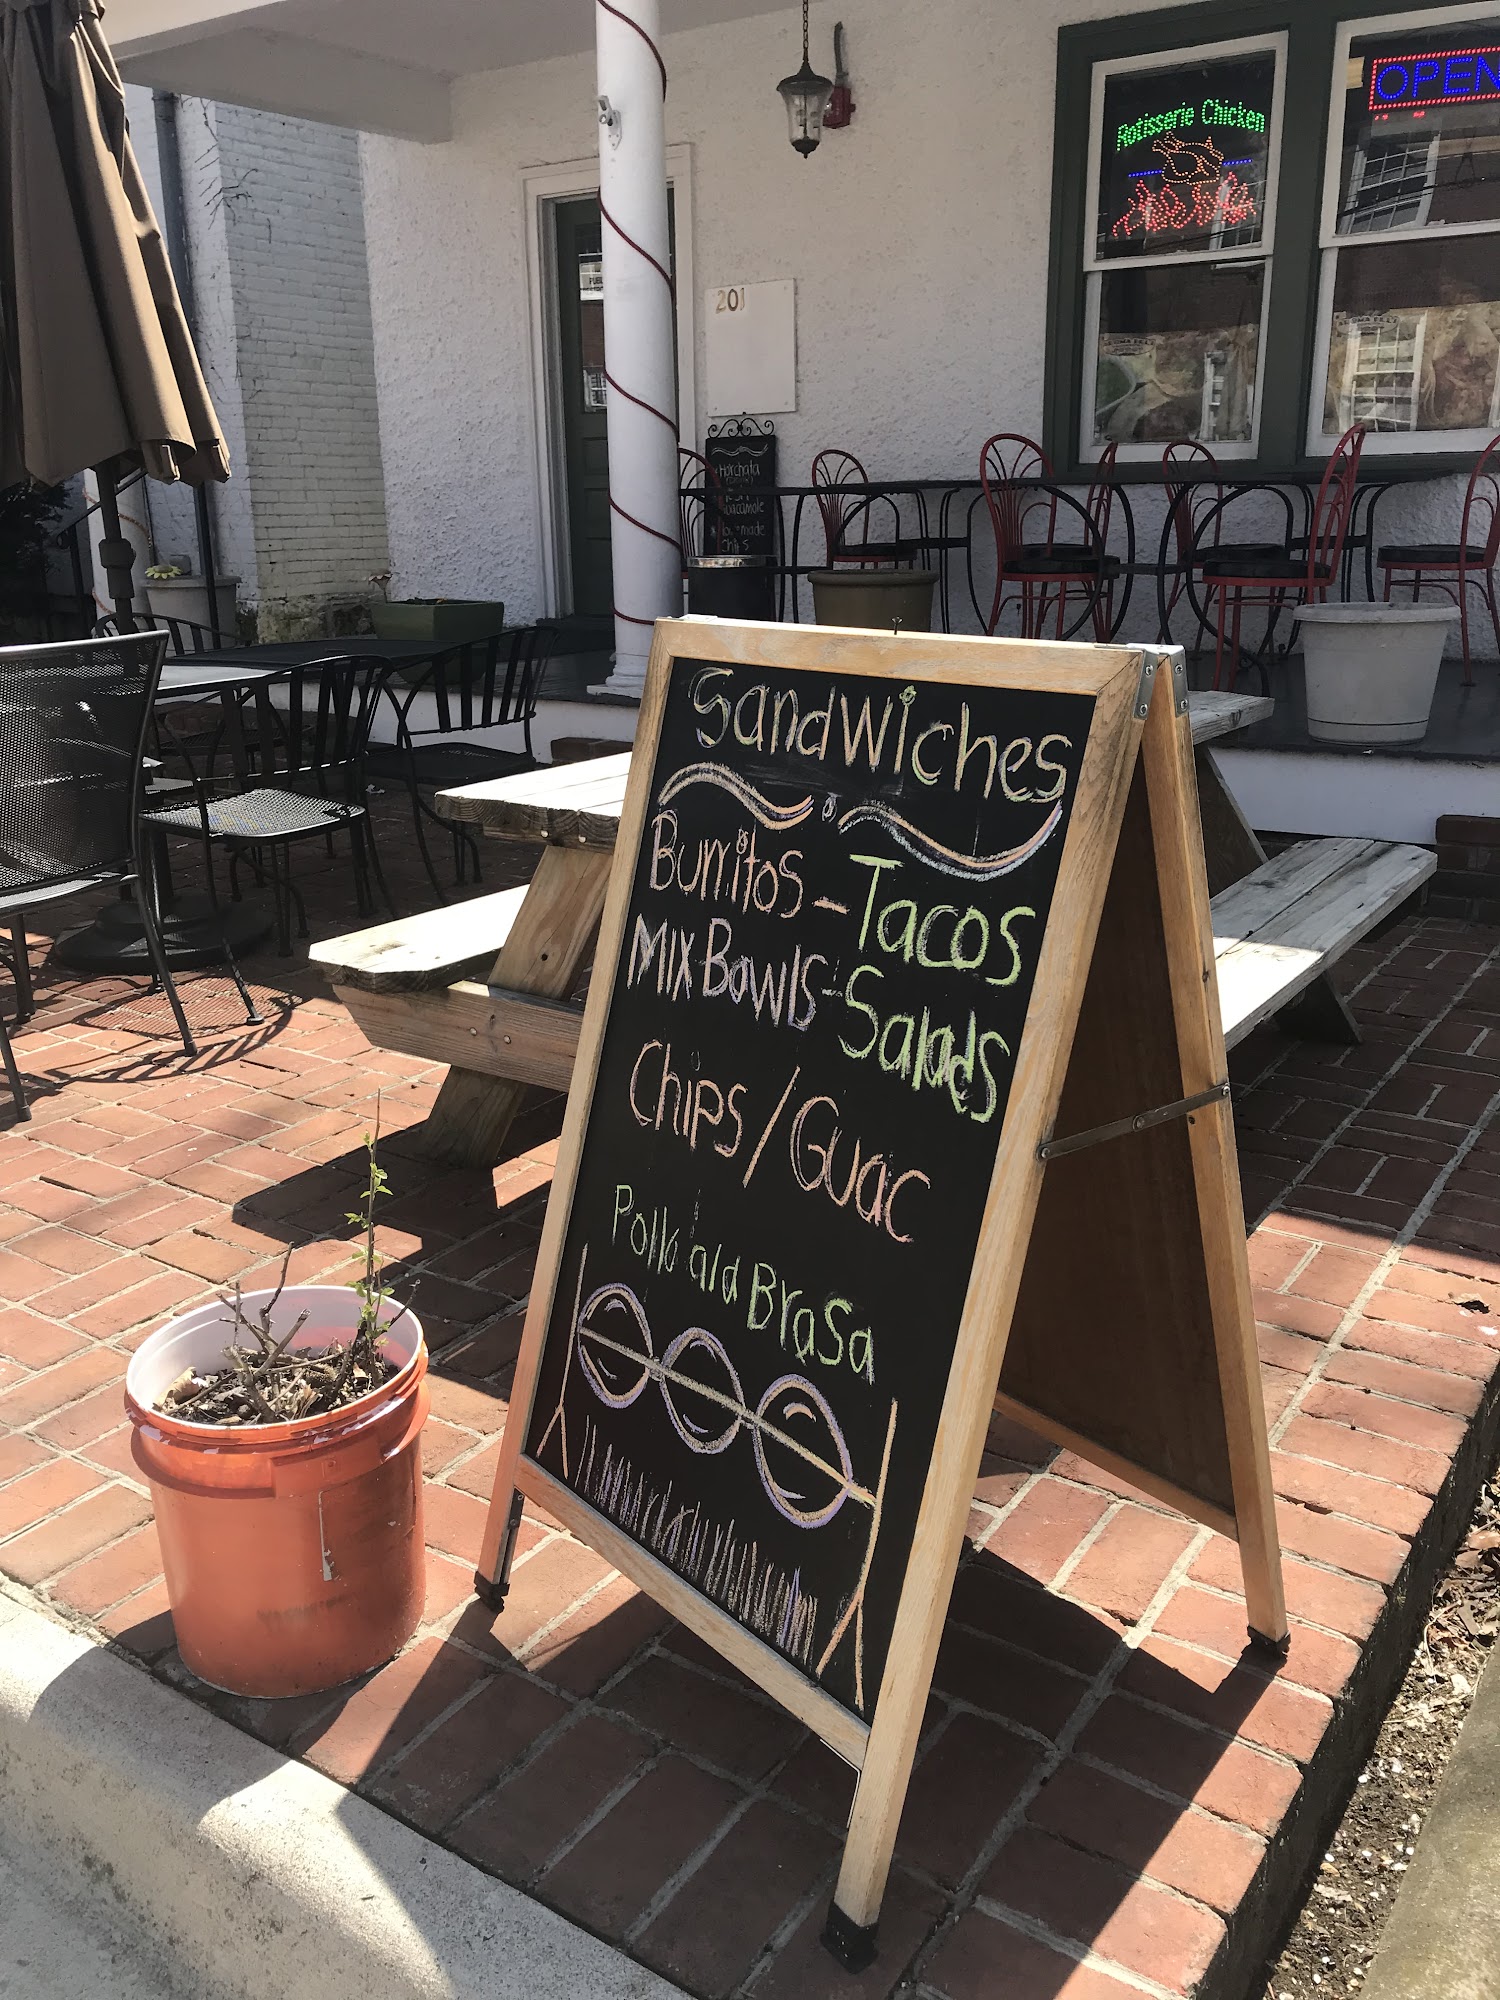 Rotisserie Chicken
OPEN
201
Horchata
Guacamole
chips
Sandwiches
Burritos - Tacos
Mix Bowls - Salads
Chips / Guac
Pollo a la BraSa